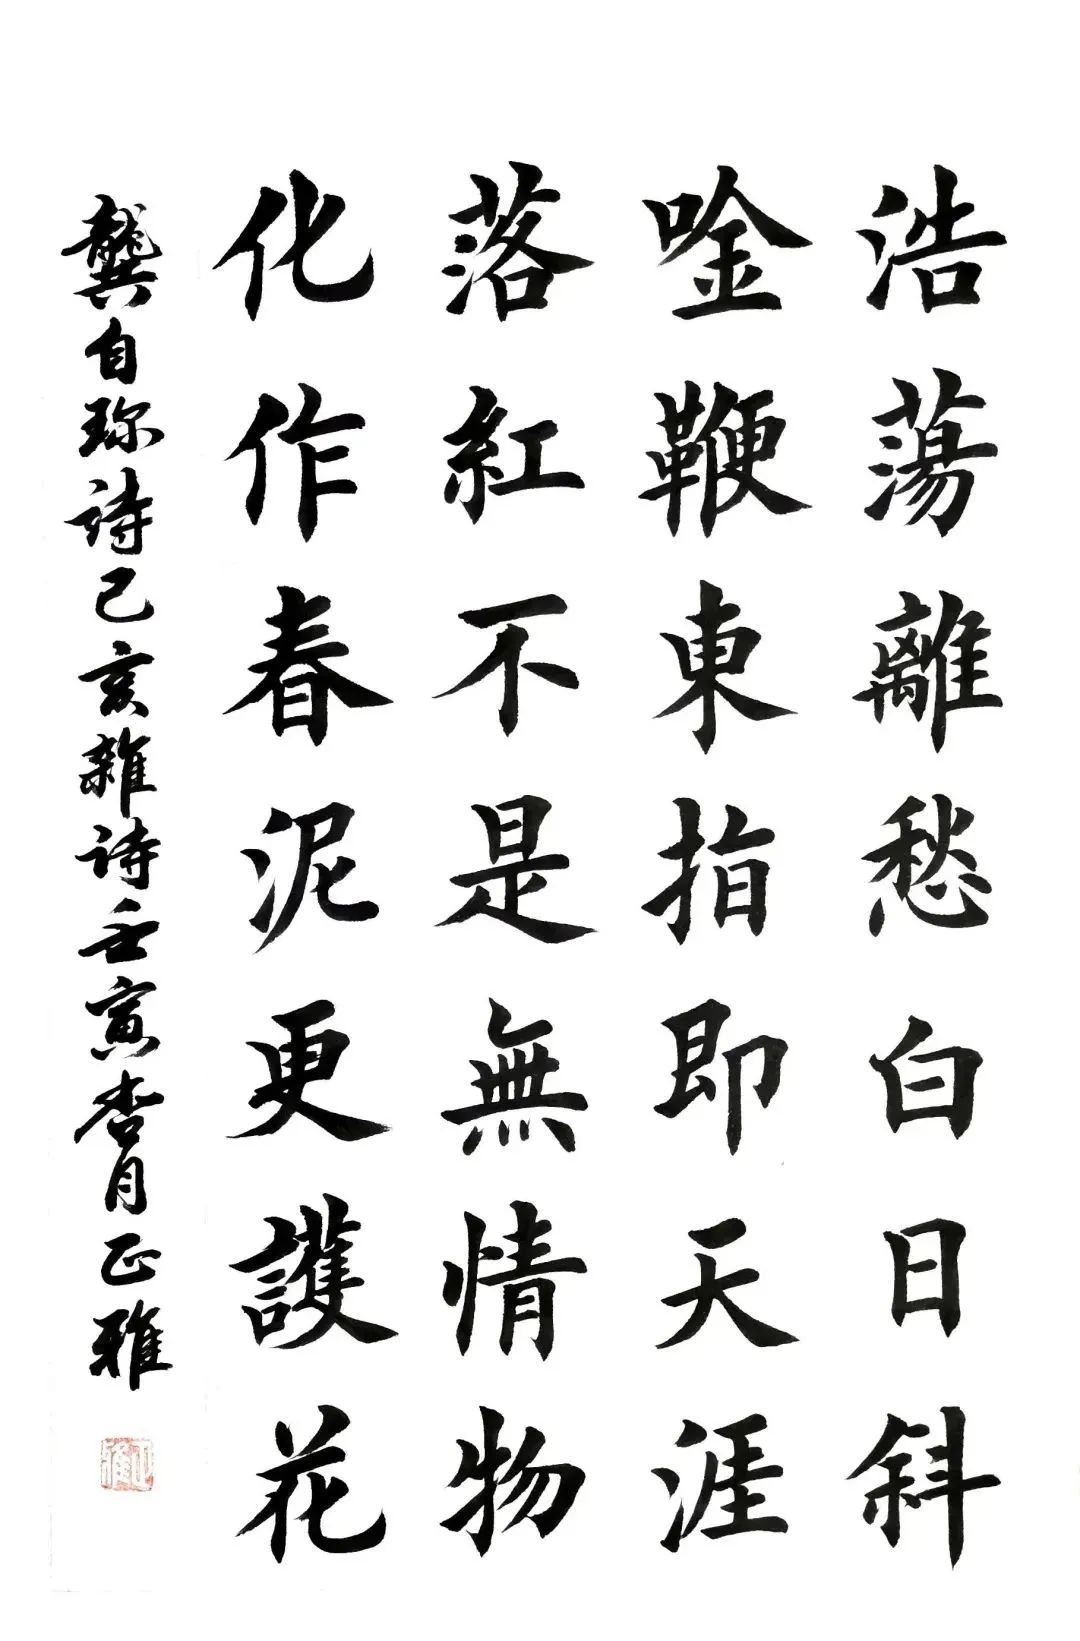 浩蕩離愁白日斜
唫鞭東指即天涯
落紅不是無情物
化作春泥更護花
龔自珍詩己亥雜詩壬寅杏月正雅